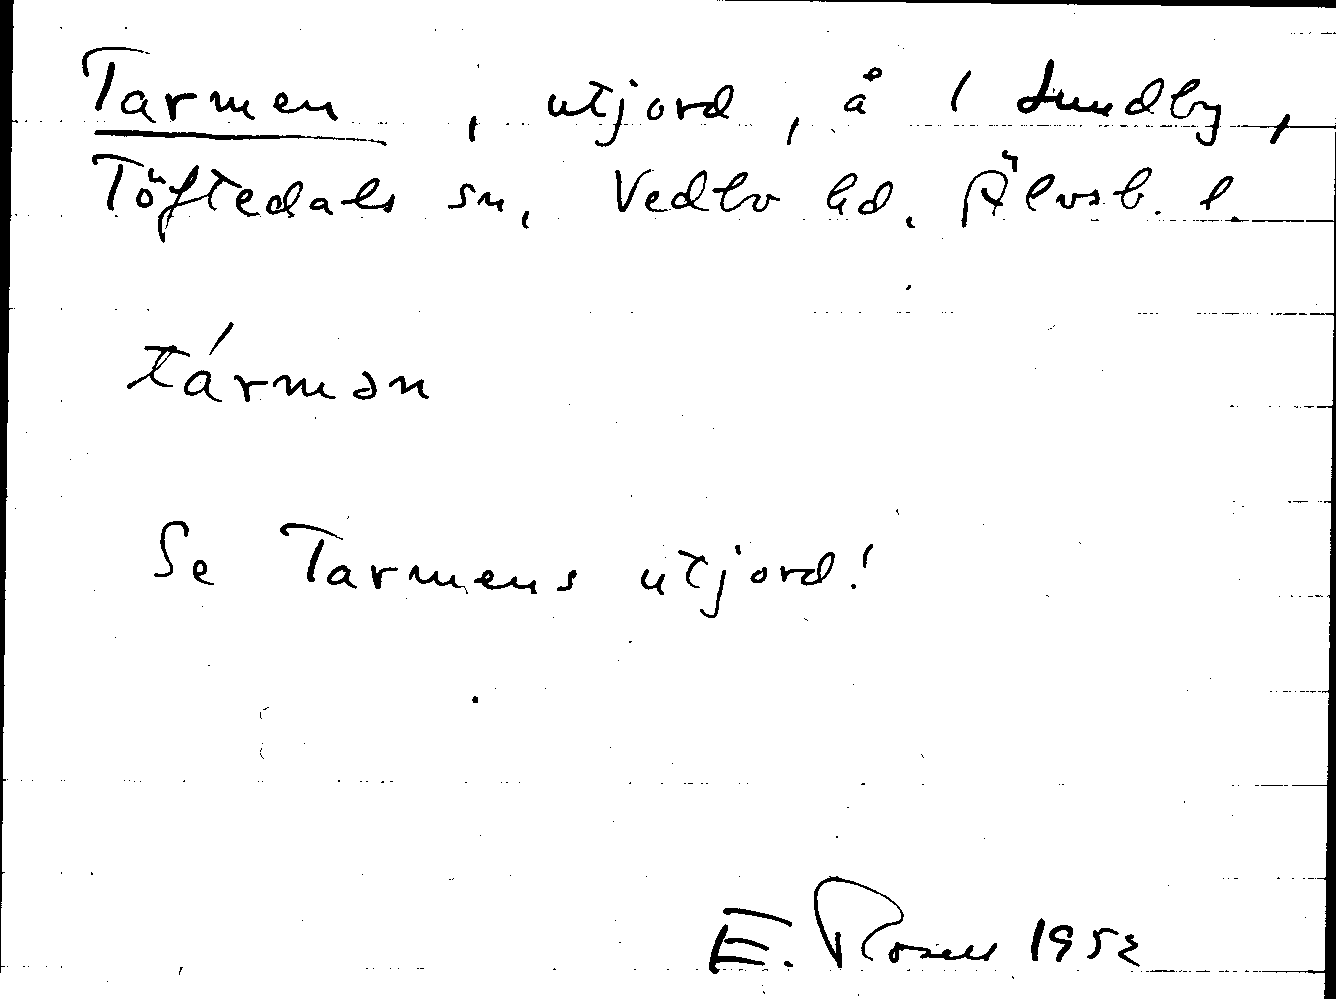 Tarmen, utjord, å 1 Sundby,
Töftedals sn, Vedbo hd. Älvsb. l.
tármən
Se Tarmens utjord!
E. Rosell 1952